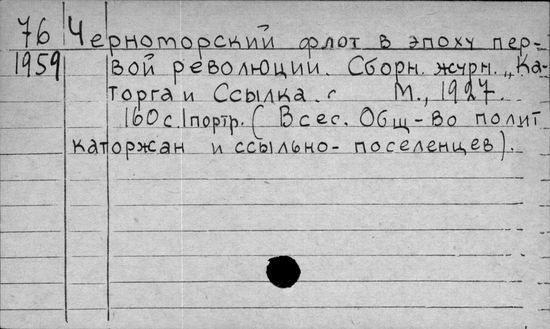 76 Черноморский флот в эпоху пер-
1959 вой революции. Сборн. журн. „Ка-
торга и Ссылка. М., 1927.
160 с. 1 портр. (Всес. Общ-во полит
каторжан и ссыльно-поселенцев).